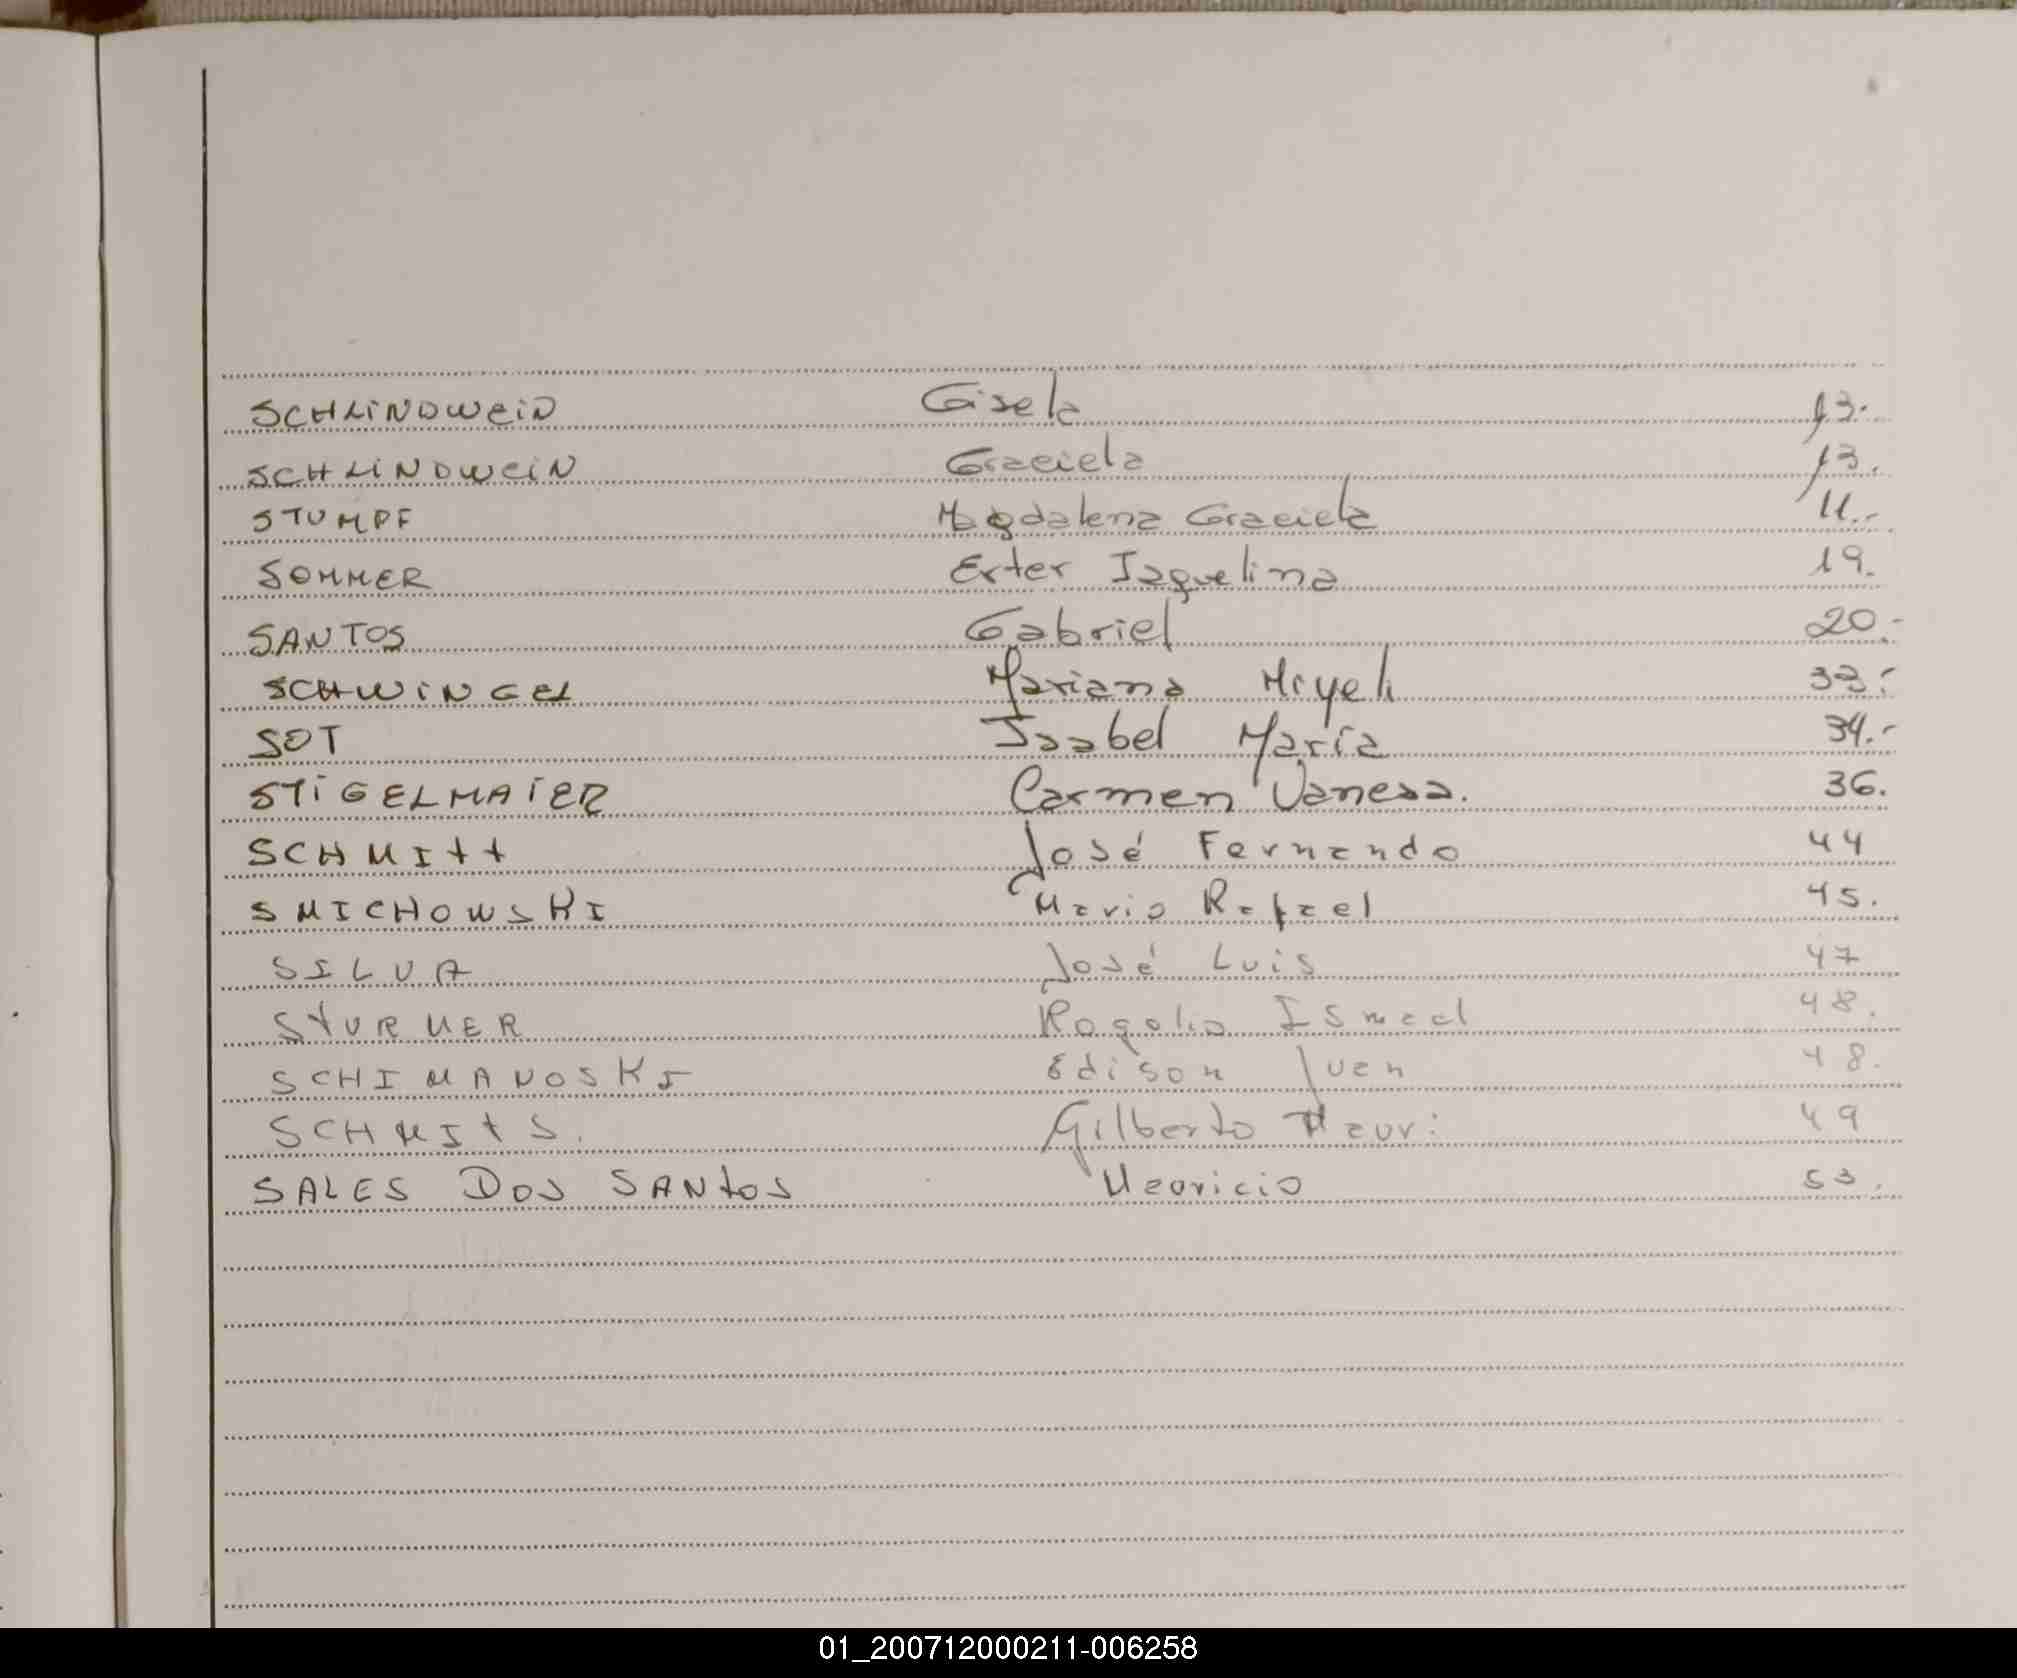 SCHLINDWEIN Gisela 13.
SCHLINDWEIN Graciela 13.
STUMPF Magdalena Graciela 11.-
SOMMER Ester Jaquelina 19.
SANTOS Gabriel 20.-
SCHWINGEL Mariana 33.-
SOT Isabel María 34.-
STIGELMAIER Carmen Vanesa. 36.
SCHMITT José Fernando 44
SMICHOWSKI Mario Rafael 45.
SILVA José Luis 47
STURMER Rogelio Ismael 48.
SCHIMANOSKI Edison Juan 48.
SCHMITS. Gilberto Mauri 49
SALES DOS SANTOS Mauricio 53.
01_200712000211-006258